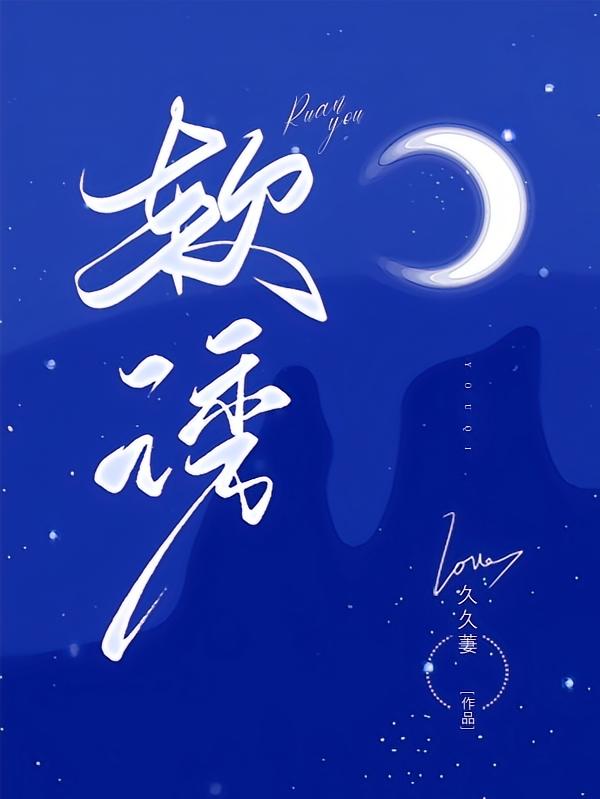 Ruan
you
软诱
YOUQI
Love
久久萋
[作品]